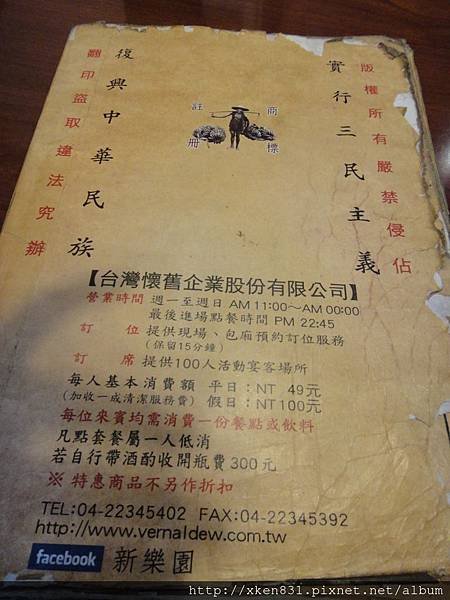 版權所有嚴禁侵佔
實行三民主義
商標
註冊
復興中華民族
翻印盜取違法究辦
【台灣懷舊企業股份有限公司】
營業時間 週一至週日 AM 11:00～AM 00:00
最後進場點餐時間 PM 22:45
訂 位 提供現場、包廂預約訂位服務
(保留15分鐘)
訂 席 提供100人活動宴客場所
每人基本消費額 平日：NT 49元
(加收一成清潔服務費) 假日：NT 100元
每位來賓均需消費一份餐點或飲料
凡點套餐屬一人低消
若自行帶酒酌收開瓶費300元
※ 特惠商品不另作折扣
TEL:04-22345402 FAX:04-22345392
http://www.vernaldew.com.tw
facebook 新樂園
http://xken831.pixnet.net/album